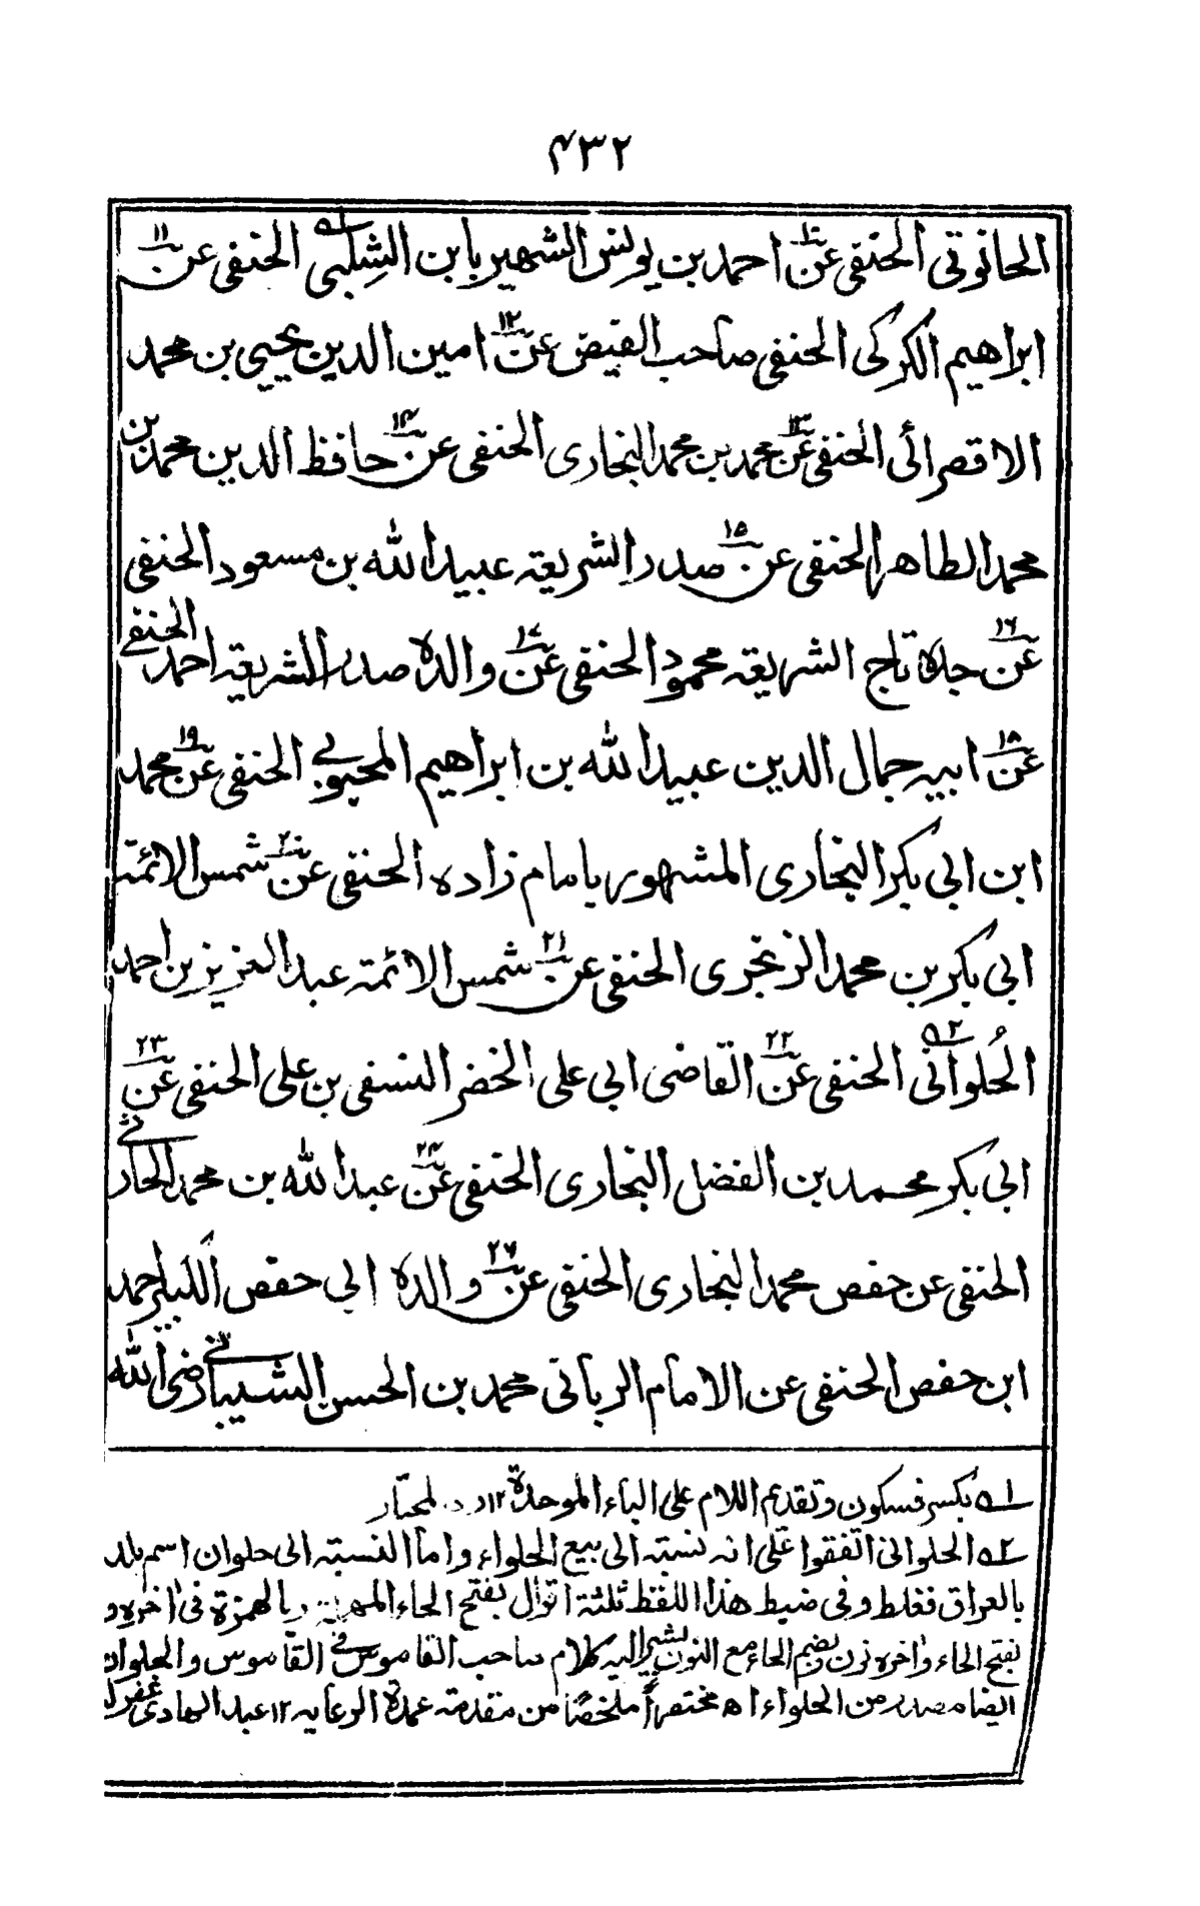 ۴۳۲
الحانوتی الحنفی عن۱۰ احمد بن یونس الشهیر بابن الشِلبی۱ه الحنفی عن۱۱
ابراهیم الکرکی الحنفی صاحب الفیض عن۱۲ امین الدین یحیی بن محمد
الاقصرائی الحنفی عن۱۳ محمد بن محمد البخاری الحنفی عن۱۴ حافظ الدین محمد بن
محمد الطاهر الحنفی عن۱۵ صدر الشریعة عبید الله بن مسعود الحنفی
عن۱۶ جده تاج الشریعة محمود الحنفی عن۱۷ والده صدر الشریعة احمد الحنفی
عن۱۸ ابیه جمال الدین عبید الله بن ابراهیم المحبوبی الحنفی عن۱۹ محمد
ابن ابی بکر البخاری المشهور بامام زاده الحنفی عن۲۰ شمس الائمة
ابی بکر بن محمد الزنجری الحنفی عن۲۱ شمس الائمة عبد العزیز بن احمد
الحُلوانی۲ه الحنفی عن۲۲ القاضی ابی علی الخضر النسفی بن علی الحنفی عن۲۳
ابی بکر محمد بن الفضل البخاری الحنفی عن۲۴ عبد الله بن محمد الحارثی
الحنفی عن حفص محمد البخاری الحنفی عن۲۶ والده ابی حفص الکبیر احمد
ابن حفص الحنفی عن الامام الربانی محمد بن الحسن الشیبانی رضی الله
۱ه بکسر فسکون وتقدیم اللام علی الباء الموحدة ۱۲
۲ه الحلوانی اتفقوا علی انه نسبة الی بیع الحلواء واما النسبة الی حلوان اسم بلد
بالعراق فغلط وفی ضبط هذا اللفظ ثلثة اقوال بفتح الحاء المهملة وبالهمزة فی اخره و
بفتح الحاء واخره نون وبضم الحاء مع النون یشیر الیه کلام صاحب القاموس فی القاموس والحلوان
ایضا مصدر من الحلواء اه مختصراً ملخصًا من مقدمة عمدة الرعایه ۱۲ عبد الهادی غفر له